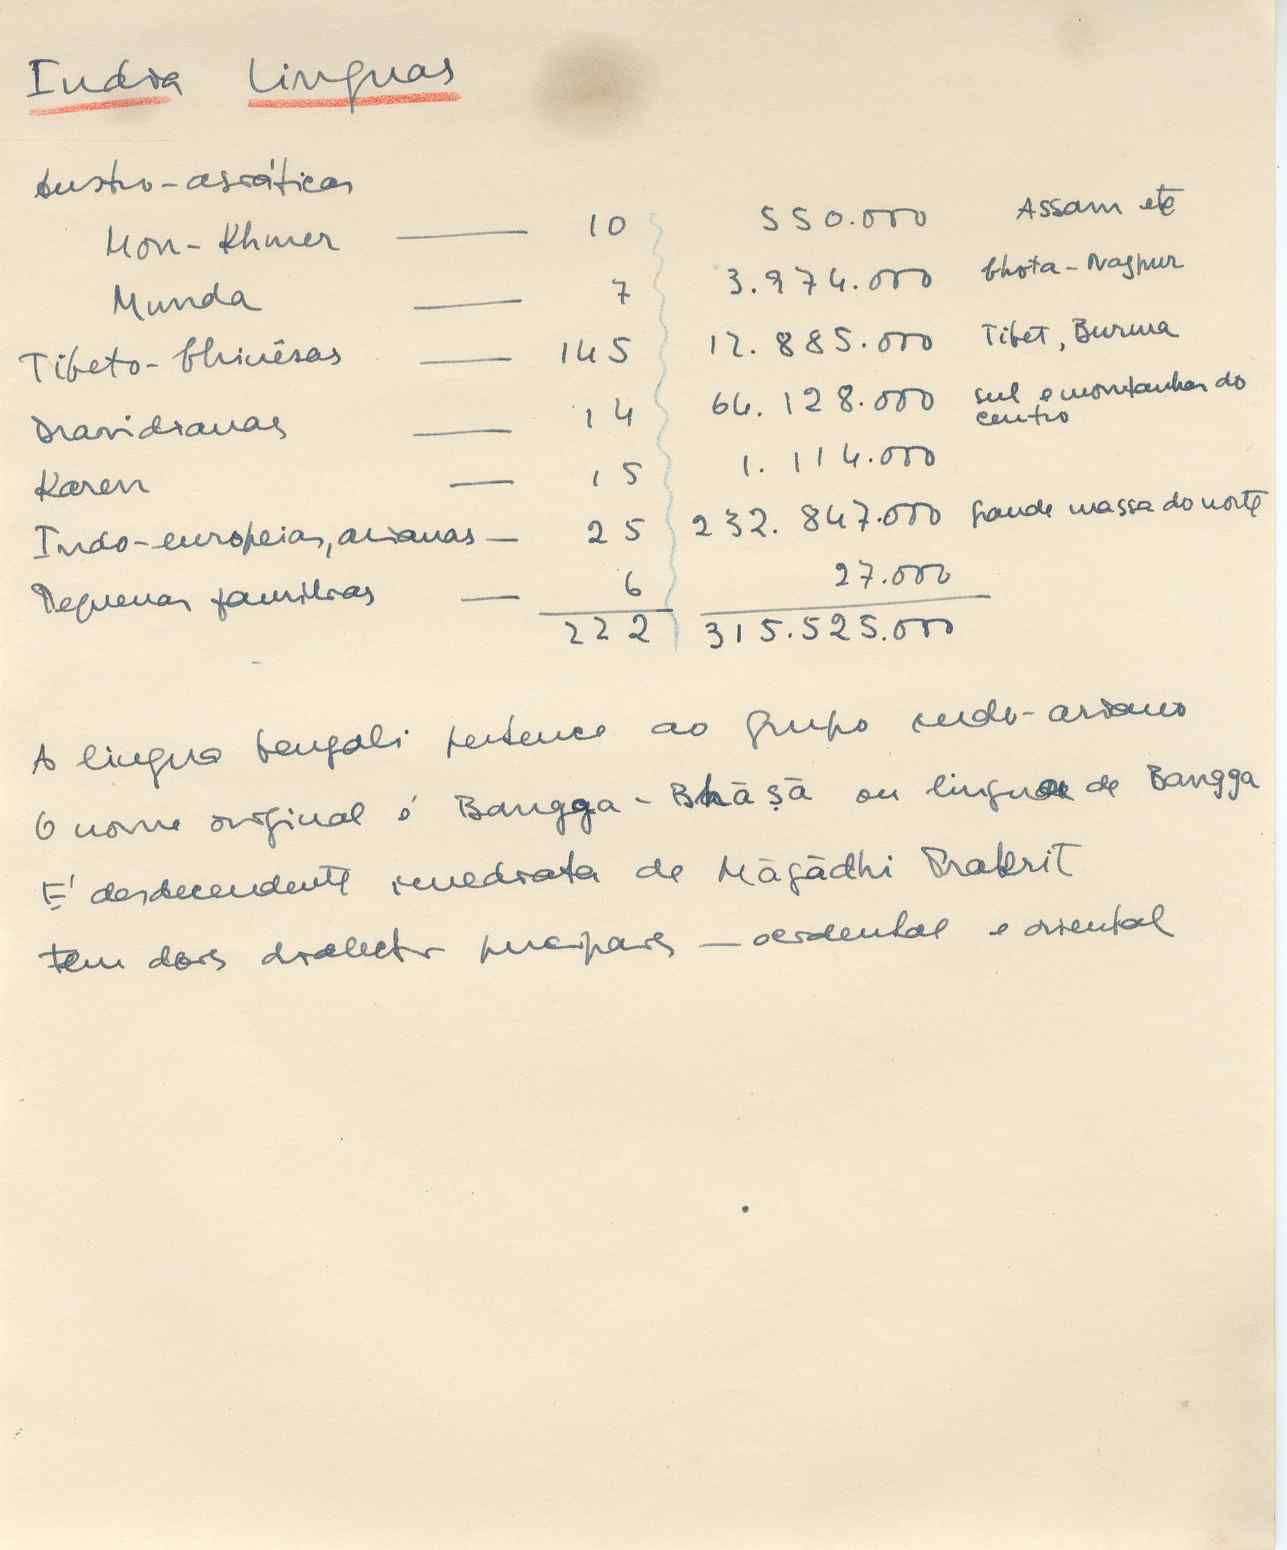 India Linguas
Austro-asiáticas
Mon-Khmer — 10 550.000 Assam etc
Munda — 7 3.974.000 Chota-Nagpur
Tibeto-Chinêsas — 145 12.885.000 Tibet, Burma
Dravidianas — 14 64.128.000 sul e montanhas do centro
Karen — 15 1.114.000
Indo-europeias, arianas — 25 232.847.000 Grande massa do norte
Pequenas familias — 6 27.000
222 315.525.000
A lingua bengali pertence ao grupo indo-ariano
O nome original é Bangga-Bhāṣā ou lingua de Bangga
E' desdecendente imediata de Māgādhi Prakrit
tem dois dialectos principais — ocidental e oriental